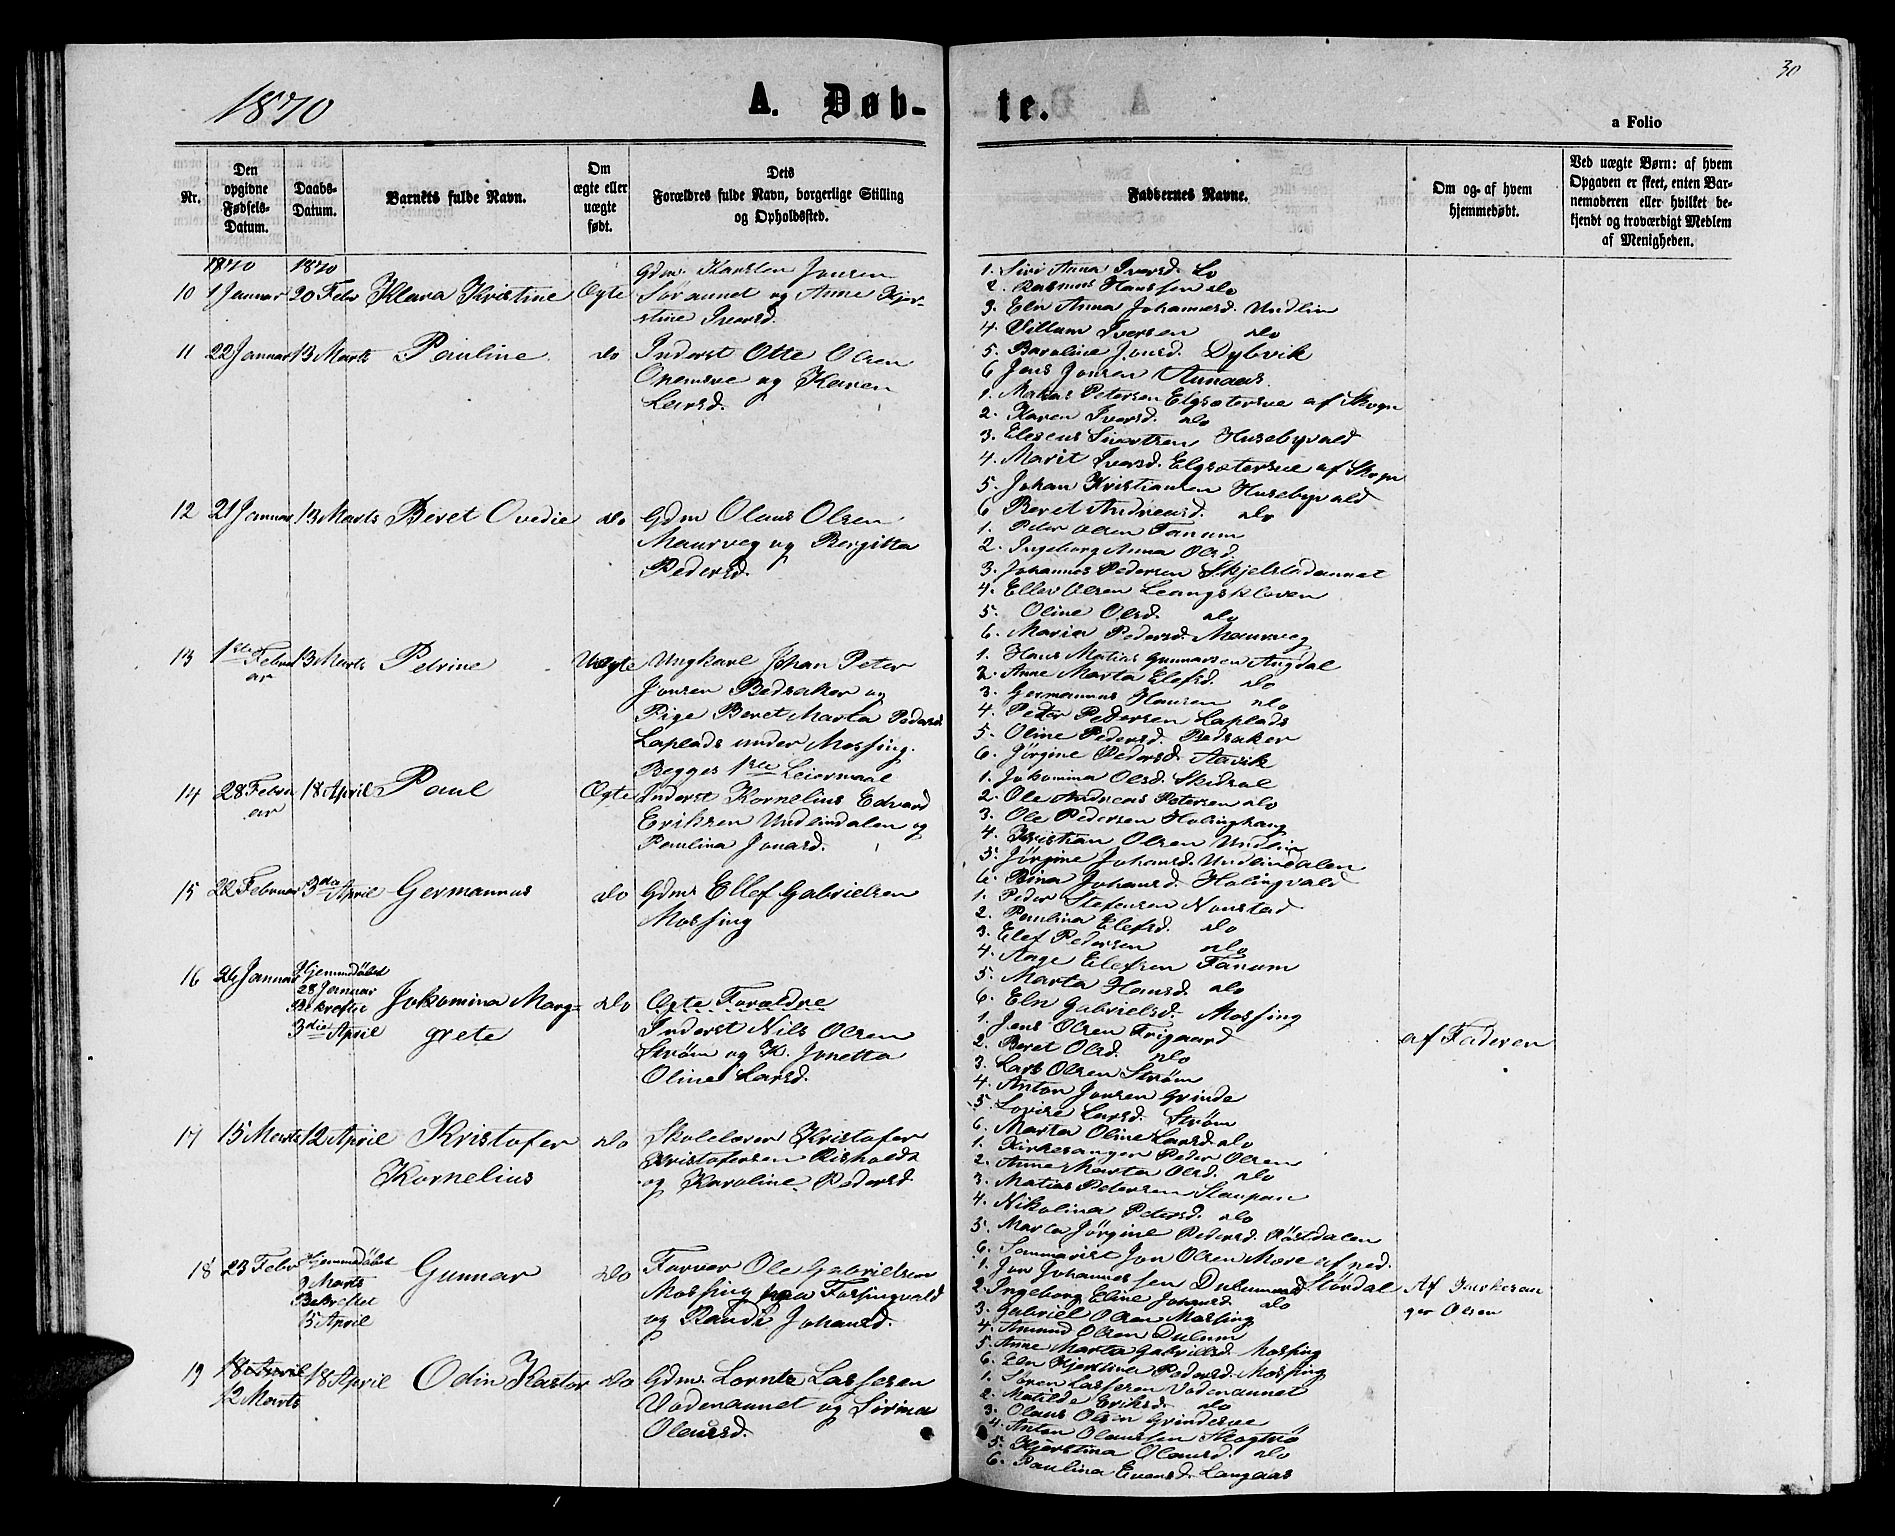 1870
A. Døb-
te.
30
a Folio
Nr.
Den opgivne Fødsels-Datum.
Daabs-Datum.
Barnets fulde Navn.
Om ægte eller uægte født.
Dets Forældres fulde Navn, borgerlige Stilling og Opholdssted.
Faddernes Navne.
Om og af hvem hjemmedøbt.
Ved uægte Børn: af hvem Opgaven er skeet, enten Barnemoderen eller hvilket bekjendt og troværdigt Medlem af Menigheden.
1870 1870
10 1 Januar 20 Febr Klara Kristine Ægte
Gdm. Karsten Jonsen
Søraunet og Anne Kjer-
stine Iversd.
1. Siri Anna Iversd. Lo
2. Rasmus Hanssen do
3. Eln Anna Johannesd. Undlin
4. Villum Iversen do
5. Baroline Jonsd. Dybvik
6 Jens Jonsen Aunaas.
11 22 Januar 13 Marts Pauline do
Inderst Otte Olsen
Opemsve og Karen
Larsd.
1. Matias Petersen Elgsætersve af Skogn
2. Karen Iversd. do
3. Eleseus Sivertsen Husebyvald
4. Marit Iversd. Elgsætersve af Skogn
5. Johan Kristiansen Husebyvald
6 Beret Andreasd. do
12 21 Januar 13 Marts Beret Ovedie do
Gdm Olaus Olsen
Maurveg og Bergitta
Pedersd.
1. Peter Olsen Fanum
2. Ingeborg Anna Olsd.
3. Johannes Pedersen Skjelstadaunet
4. Ellev Olsen Leangskleven
5. Oline Olsd. do
6. Maria Pedersd. Maurveg
13 1ste Febru
ar
13 Marts Petrine Uægte
Ungkarl Johan Peter
Jonsen Bedsaker og
Pige Beret Marta Pedersd
Laplads under Mossing.
Begges 1ste Leiermaal
1. Hans Matias Gunnarsen Augdal
2. Anne Marta Elefsd. do
3. Germannus Hansen do
4. Peter Pedersen Laplads
5. Oline Pedersd. Bedsaker
6. Jørgine Pedersd. Aavik
14 28 Febru
ar
18 April Paul Ægte
Inderst Kornelius Edvard
Eriksen Undlindalen og
Paulina Jonasd.
1. Jokomina Olsd. Skidsal
2. Ole Andreas Petersen do
3. Ole Pedersen Holinghaug
4. Kristian Olsen Undlin
5. Jørgine Johansd. Undlindalen
6. Bina Johansd. Holingvald
15 22 Februar 3die April Germannus do
Gdm. Ellef Gabrielsen
Mossing
1. Peder Stefensen Nonstad
2. Paulina Elefsd. do
3. Elef Pedersen do
4. Aage Elefsen Fanum
5. Marta Hansd. do
6. Eln Gabrielsd. Mossing
16 26 Januar Hjemmedøbt
28 Januar
Bekreftet
3die April
Jokomina Marg-
grete
do
Ægte Forældre
Inderst Nils Olsen
Strøm og K. Jonetta
Oline Larsd.
1. Jens Olsen Frigaard
2. Beret Olsd. do
3. Lars Olsen Strøm
4. Anton Jonsen Grinde
5. Lovise Larsd. Strøm
6. Marta Oline Larsd. do
af Faderen
17 15 Marts 12 April Kristofer
Kornelius
do
Skolelærer Kristofer
Kristofersen Risholdt
og Karoline Pedersd
1. Kirkesanger Peder Olsen
2. Anne Marta Olsd. do
3. Matias Petersen Staupan
4. Nikolina Petersd. do
5. Marta Jørgine Pedersd. Røstdalen
6. Sommarist Jon Olsen More af ned.
Størdal
18 23 Febr Hjemmedøbt
9 Marts
Bekreftet
15 April
Gunnar do
Farver Ole Gabrielsen
Mossing paa Forsingvald
og Randi Johansd.
1. Jon Johannessen Dulum
2. Ingeborg Eline Johansd. do
3. Gabriel Olsen Mossing
4. Amund Olsen Dulum
5. Anne Marta Gabrielsd. Mossing
6. Eln Kjerstina Pedersd. Mossing
Af Kirkesan
ger Olsen
19 18 April
12 Marts
18 April Odin Kastor do
Gdm. Lornts Lassesen
Vodenaunet og Sirina
Olausd.
1. Søren Lassesen Vodenaunet
2. Matilde Eriksd. do
3. Olaus Olsen Grindesve
4. Anton Olaussen Mogtrø
5. Kjerstina Olausd. do
6. Paulina Evensd. Langaas